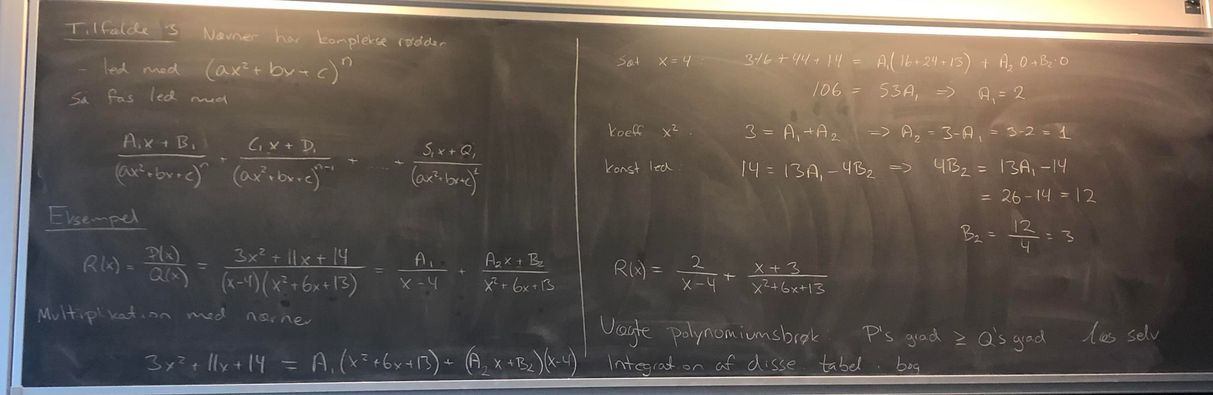 Tilfælde 3 Nævner har komplekse rødder
- led med (ax² + bx + c)ⁿ
Så fås led med
(A₁x + B₁)/(ax²+bx+c)ⁿ + (C₁x + D₁)/(ax²+bx+c)ⁿ⁻¹ + ... + (S₁x + Q₁)/(ax²+bx+c)¹
Eksempel
R(x) = P(x)/Q(x) = (3x² + 11x + 14)/((x-4)(x² + 6x + 13)) = A₁/(x-4) + (A₂x + B₂)/(x² + 6x + 13)
Multiplikation med nævner
3x² + 11x + 14 = A₁(x² + 6x + 13) + (A₂x + B₂)(x-4)
Sæt x = 4: 3·16 + 44 + 14 = A₁(16 + 24 + 13) + A₂·0 + B₂·0
106 = 53A₁ => A₁ = 2
Koeff x²: 3 = A₁ + A₂ => A₂ = 3 - A₁ = 3 - 2 = 1
konst led: 14 = 13A₁ - 4B₂ => 4B₂ = 13A₁ - 14
= 26 - 14 = 12
B₂ = 12/4 = 3
R(x) = 2/(x-4) + (x + 3)/(x² + 6x + 13)
Uægte polynomiumsbrøk. P's grad ≥ Q's grad læs selv
Integration af disse. tabel. bog